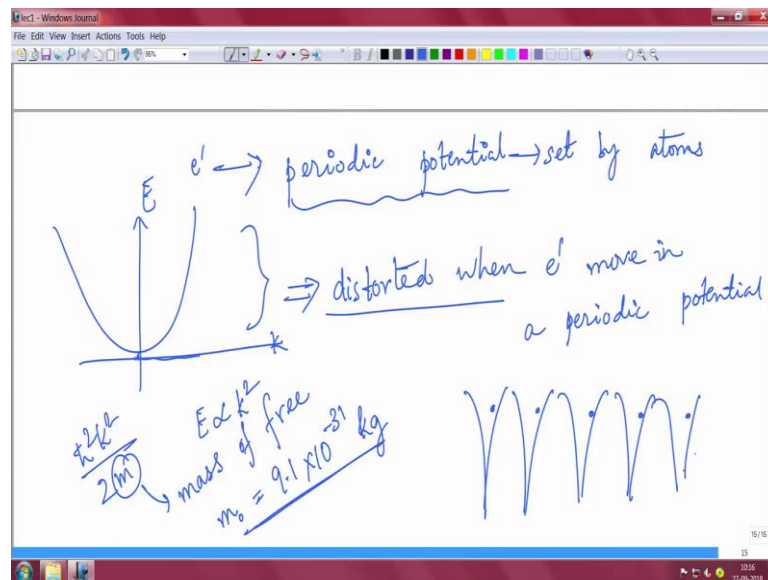 lec1 - Windows Journal
File Edit View Insert Actions Tools Help
95%
B I
e' ↔ periodic potential → set by atoms
E
⇒ distorted when e' move in
a periodic potential
k
E ∝ k²
ħ²k²
2m → mass of free
m₀ = 9.1 × 10⁻³¹ kg
15/15
15
10:16
27-09-2018